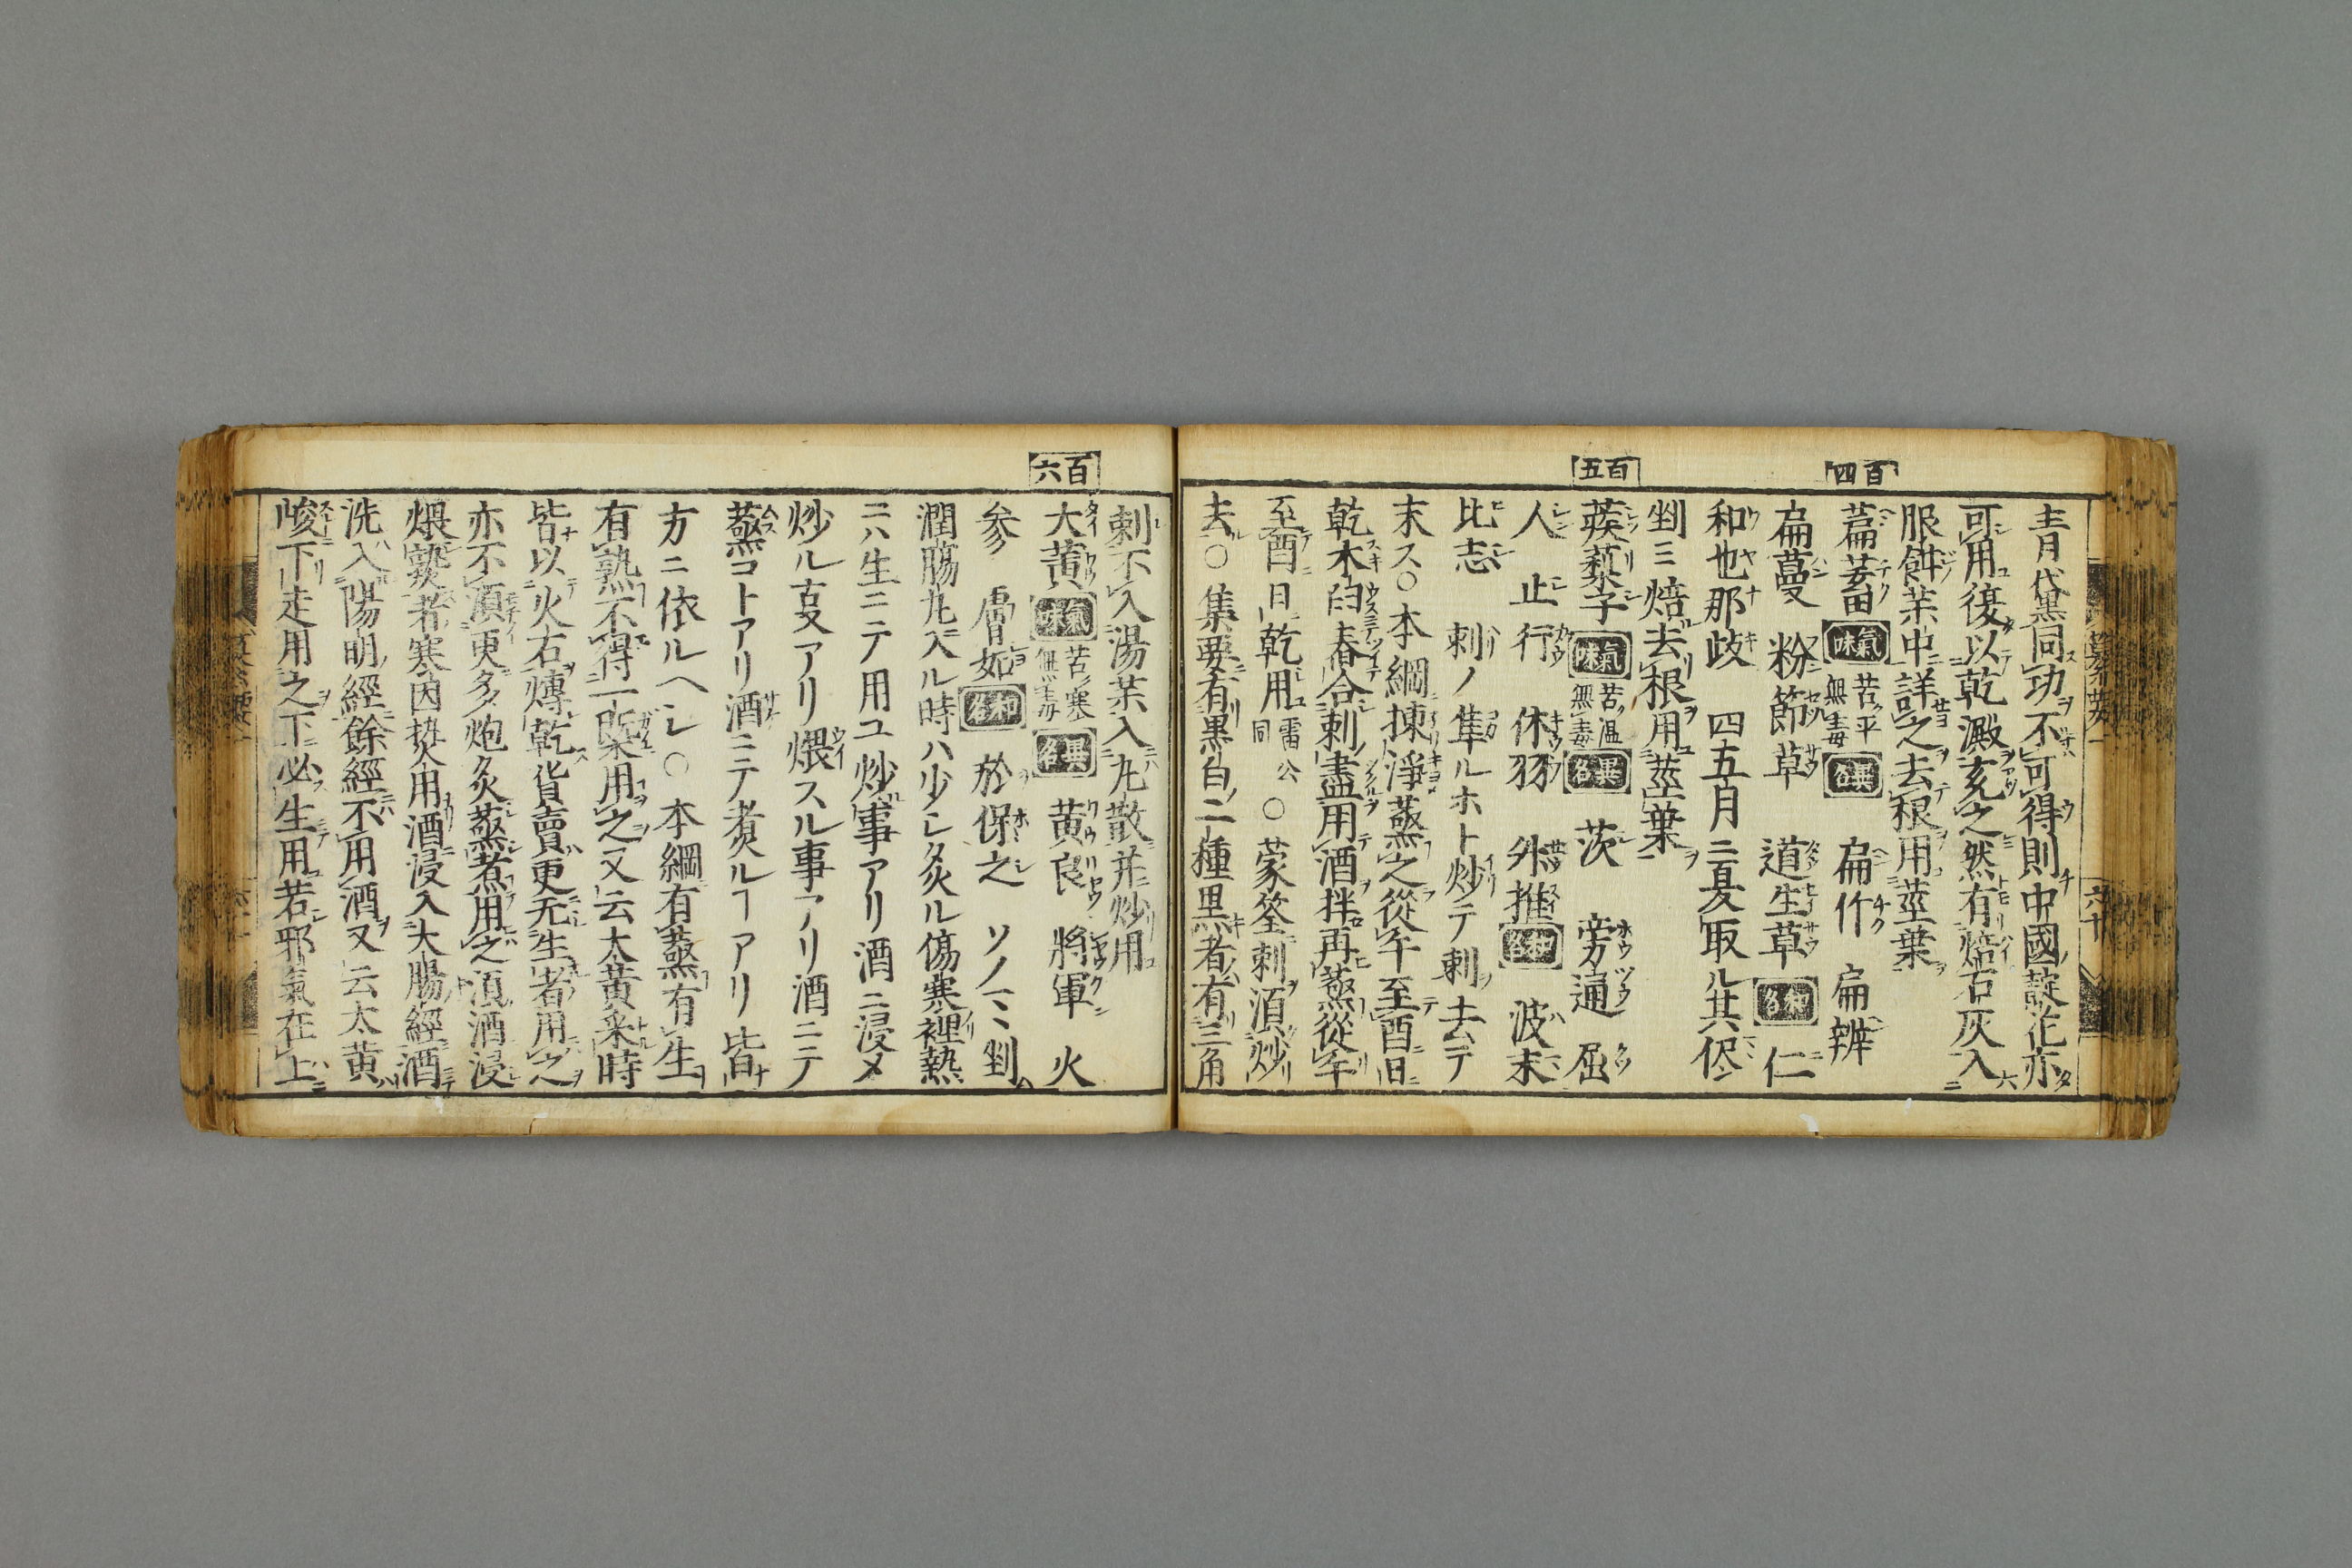 青黛同功不可得則中國靛花亦
可用復以乾澱充之然有焙石灰入
服餌茱中詳之去根用莖葉
百四
萹蓄 氣味 苦平無毒 異名 扁竹 扁辨
扁蔓 粉節草 道生草 和名 仁
和也那歧 四五月ニ夏取ル其侭
剉ミ焙去根用莖葉
百五
蒺蔾子 氣味 苦温無毒 異名 茨 旁通 屈
人 止行 休羽 外推 和名 波末
比志 刺ノ隼ルホト炒テ刺去テ
末ス○本綱揀淨蒸之從午至酉日
乾木臼舂合刺盡用酒拌再蒸從午
至酉日乾用 雷公同 ○蒙筌刺湏炒
去○集要有黒白二種黒者有三角
刺不入湯茱入丸散并炒用
百六
大黄 氣味 苦寒無毒 異名 黄良 將軍 火
参 膚如 和名 於保之 ソノミ剉
潤腸丸入ル時ハ少シ炙ル傷寒裡熱
ニハ生ニテ用ユ炒事アリ酒ニ浸メ
炒ル亥アリ煨スル事アリ酒ニテ
蒸コトアリ酒ミテ煮ルヿアリ皆
方ニ依ルヘシ○本綱有蒸有生
有熟不得一槩用之又云大黄采時
皆以火石煿乾貨賣更无生者用之
亦不湏更多炮炙蒸煮用之湏酒浸
煨熟者寒因𤍠用酒浸入大腸經酒
洗入陽明經餘經不用酒又云大黄
峻下走用之下必生用若邪氣在上